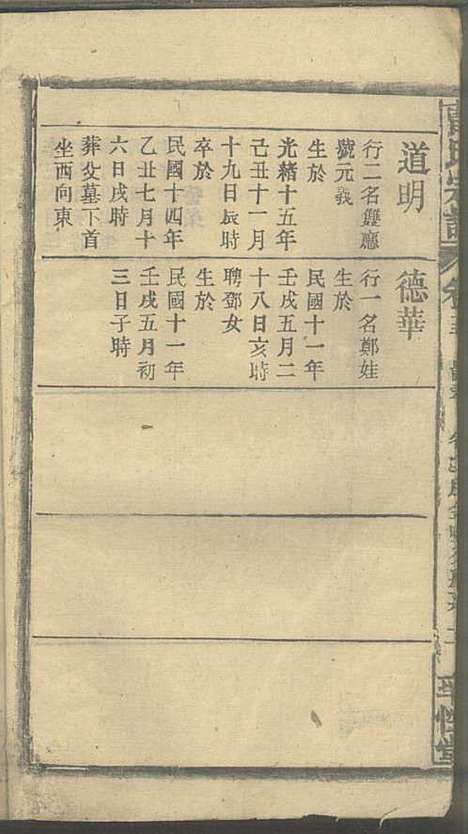 道明
行二名雙應
號元義
生於
光緒十五年
己丑十一月
十九日辰時
卒於
民國十四年
乙丑七月十
六日戌時
葬父墓下首
坐西向東
德華
行一名鄭娃
生於
民國十一年
壬戌五月二
十八日亥時
聘鄧女
生於
民國十一年
壬戌五月初
三日子時